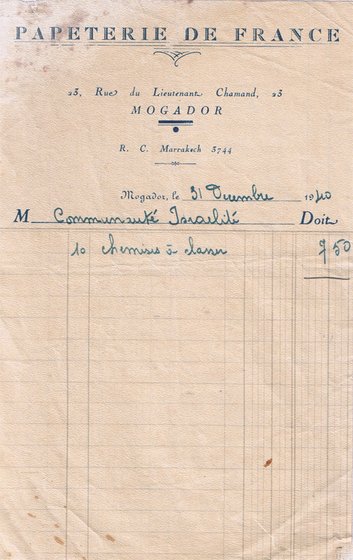 PAPETERIE DE FRANCE
23, Rue du Lieutenant Chamand, 23
MOGADOR
R. C. Marrakech 3744
Mogador, le 31 Décembre 1940
M Communauté Israelité Doit
10 chemises à classer 7 50